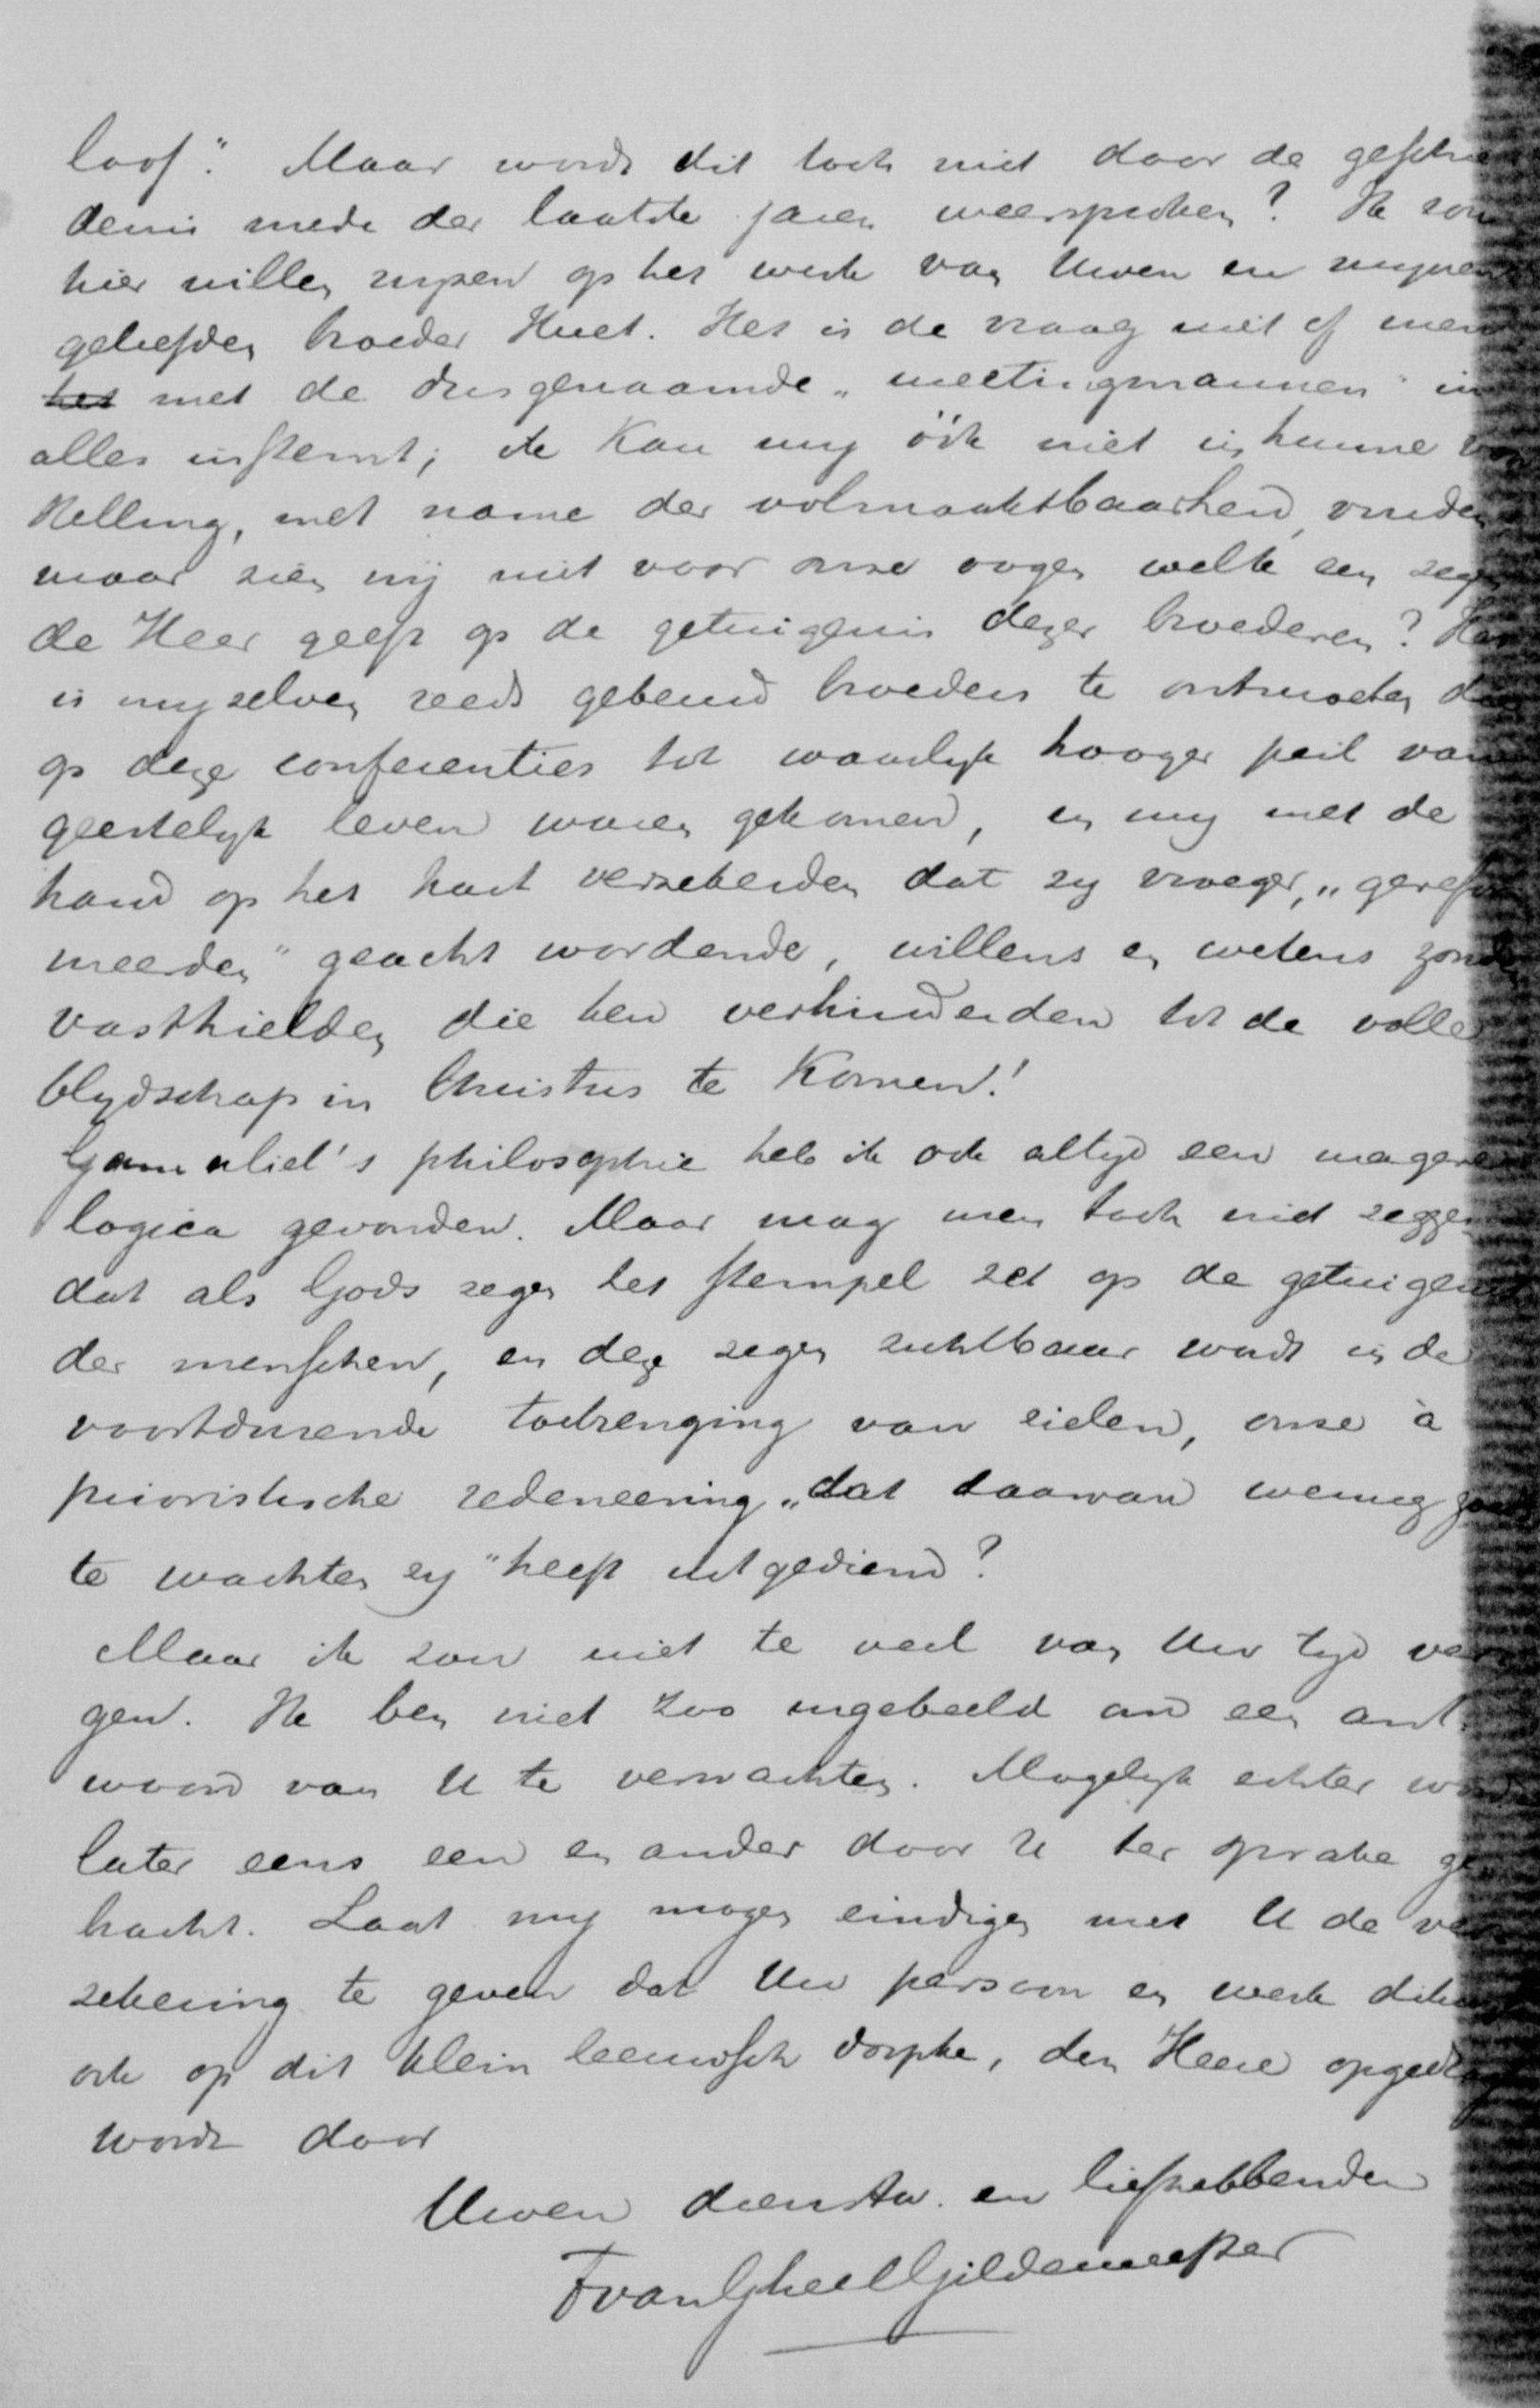 loof." Maar wordt dit toch niet door de geschie
denis mede der laatste jaren weersproken? Ik zou
hier willen wyzen op het werk van Uwen en mynen
geliefden broeder Huet. Het is de vraag niet of men
het met de dusgenaamde "meetingmannen" in
alles instemt; ik kan my óók niet in hunne voor
stelling, met name der volmaaktbaarheid, vinden
maar zien wij niet voor onze oogen welk een zegen
de Heer geeft op de getuigenis dezer broederen? Het
is myzelven reeds gebeurd broeders te ontmoeten die
op deze conferenties tot waarlyk hooger peil van
geestelyk leven waren gekomen, en my met de
hand op het hart verzekerden dat zy vroeger, "gerefor
meerden" geacht wordende, willens en wetens zonden
vasthielden die hen verhinderden tot de volle
blydschap in Christus te komen!
Gamaliel's philosophie heb ik ook altyd een magere
logica gevonden. Maar mag men toch niet zeggen
dat als Gods zegen het stempel zet op de getuigenis
der menschen, en deze zegen zichtbaar wordt in de
voortdurende toebrenging van zielen, onze à
prioristische redeneering "dat daarvan weinig goeds
te wachten zy" heeft uitgediend?
Maar ik zou niet te veel van Uw tyd ver
gen. Ik ben niet zoo ingebeeld om een ant
woord van U te verwachten. Mogelyk echter wordt
later eens een en ander door U ter sprake ge
bracht. Laat my mogen eindigen met U de ver
zekering te geven dat Uw persoon en werk dikwyls
ook op dit klein leeuwsch dorpke, den Heere opgedragen
wordt door
Uwen dienstw. en liefhebbenden
F van Gheel Gildemeester